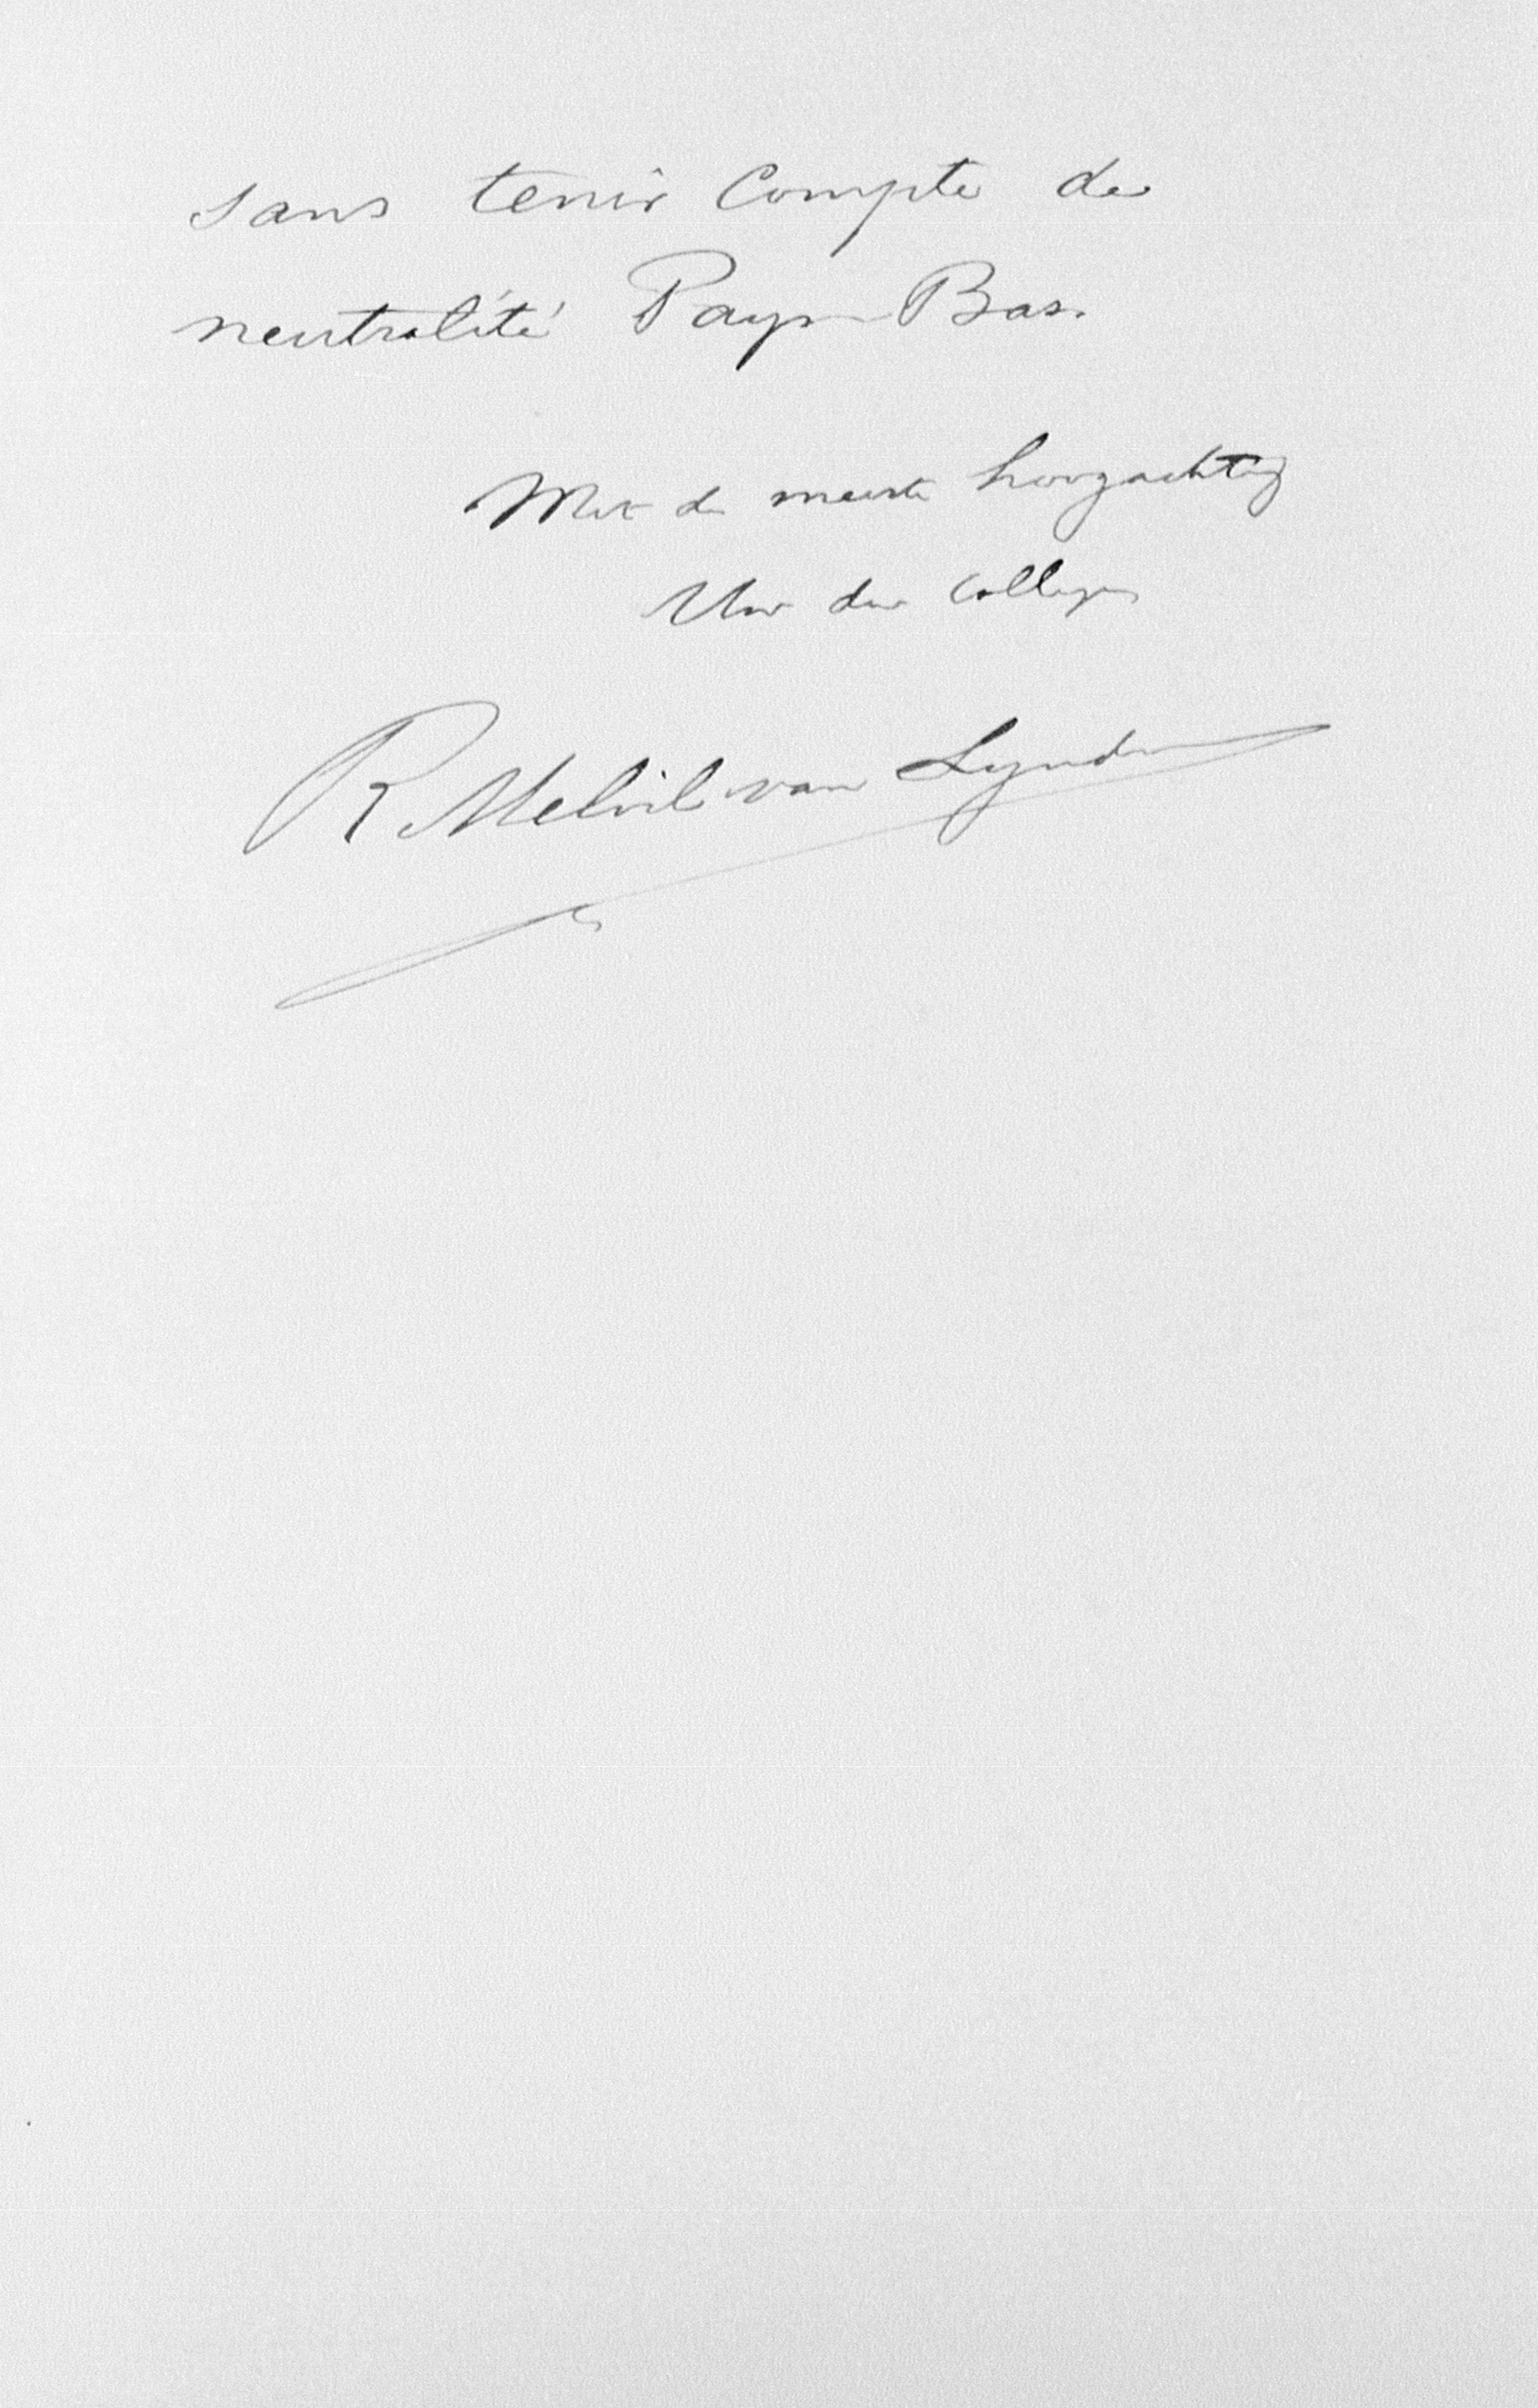 sans tenir compte de
neutralité Pays-Bas.
Met de meeste hoogachting
Uw dw collega
R Melvil van Lynden